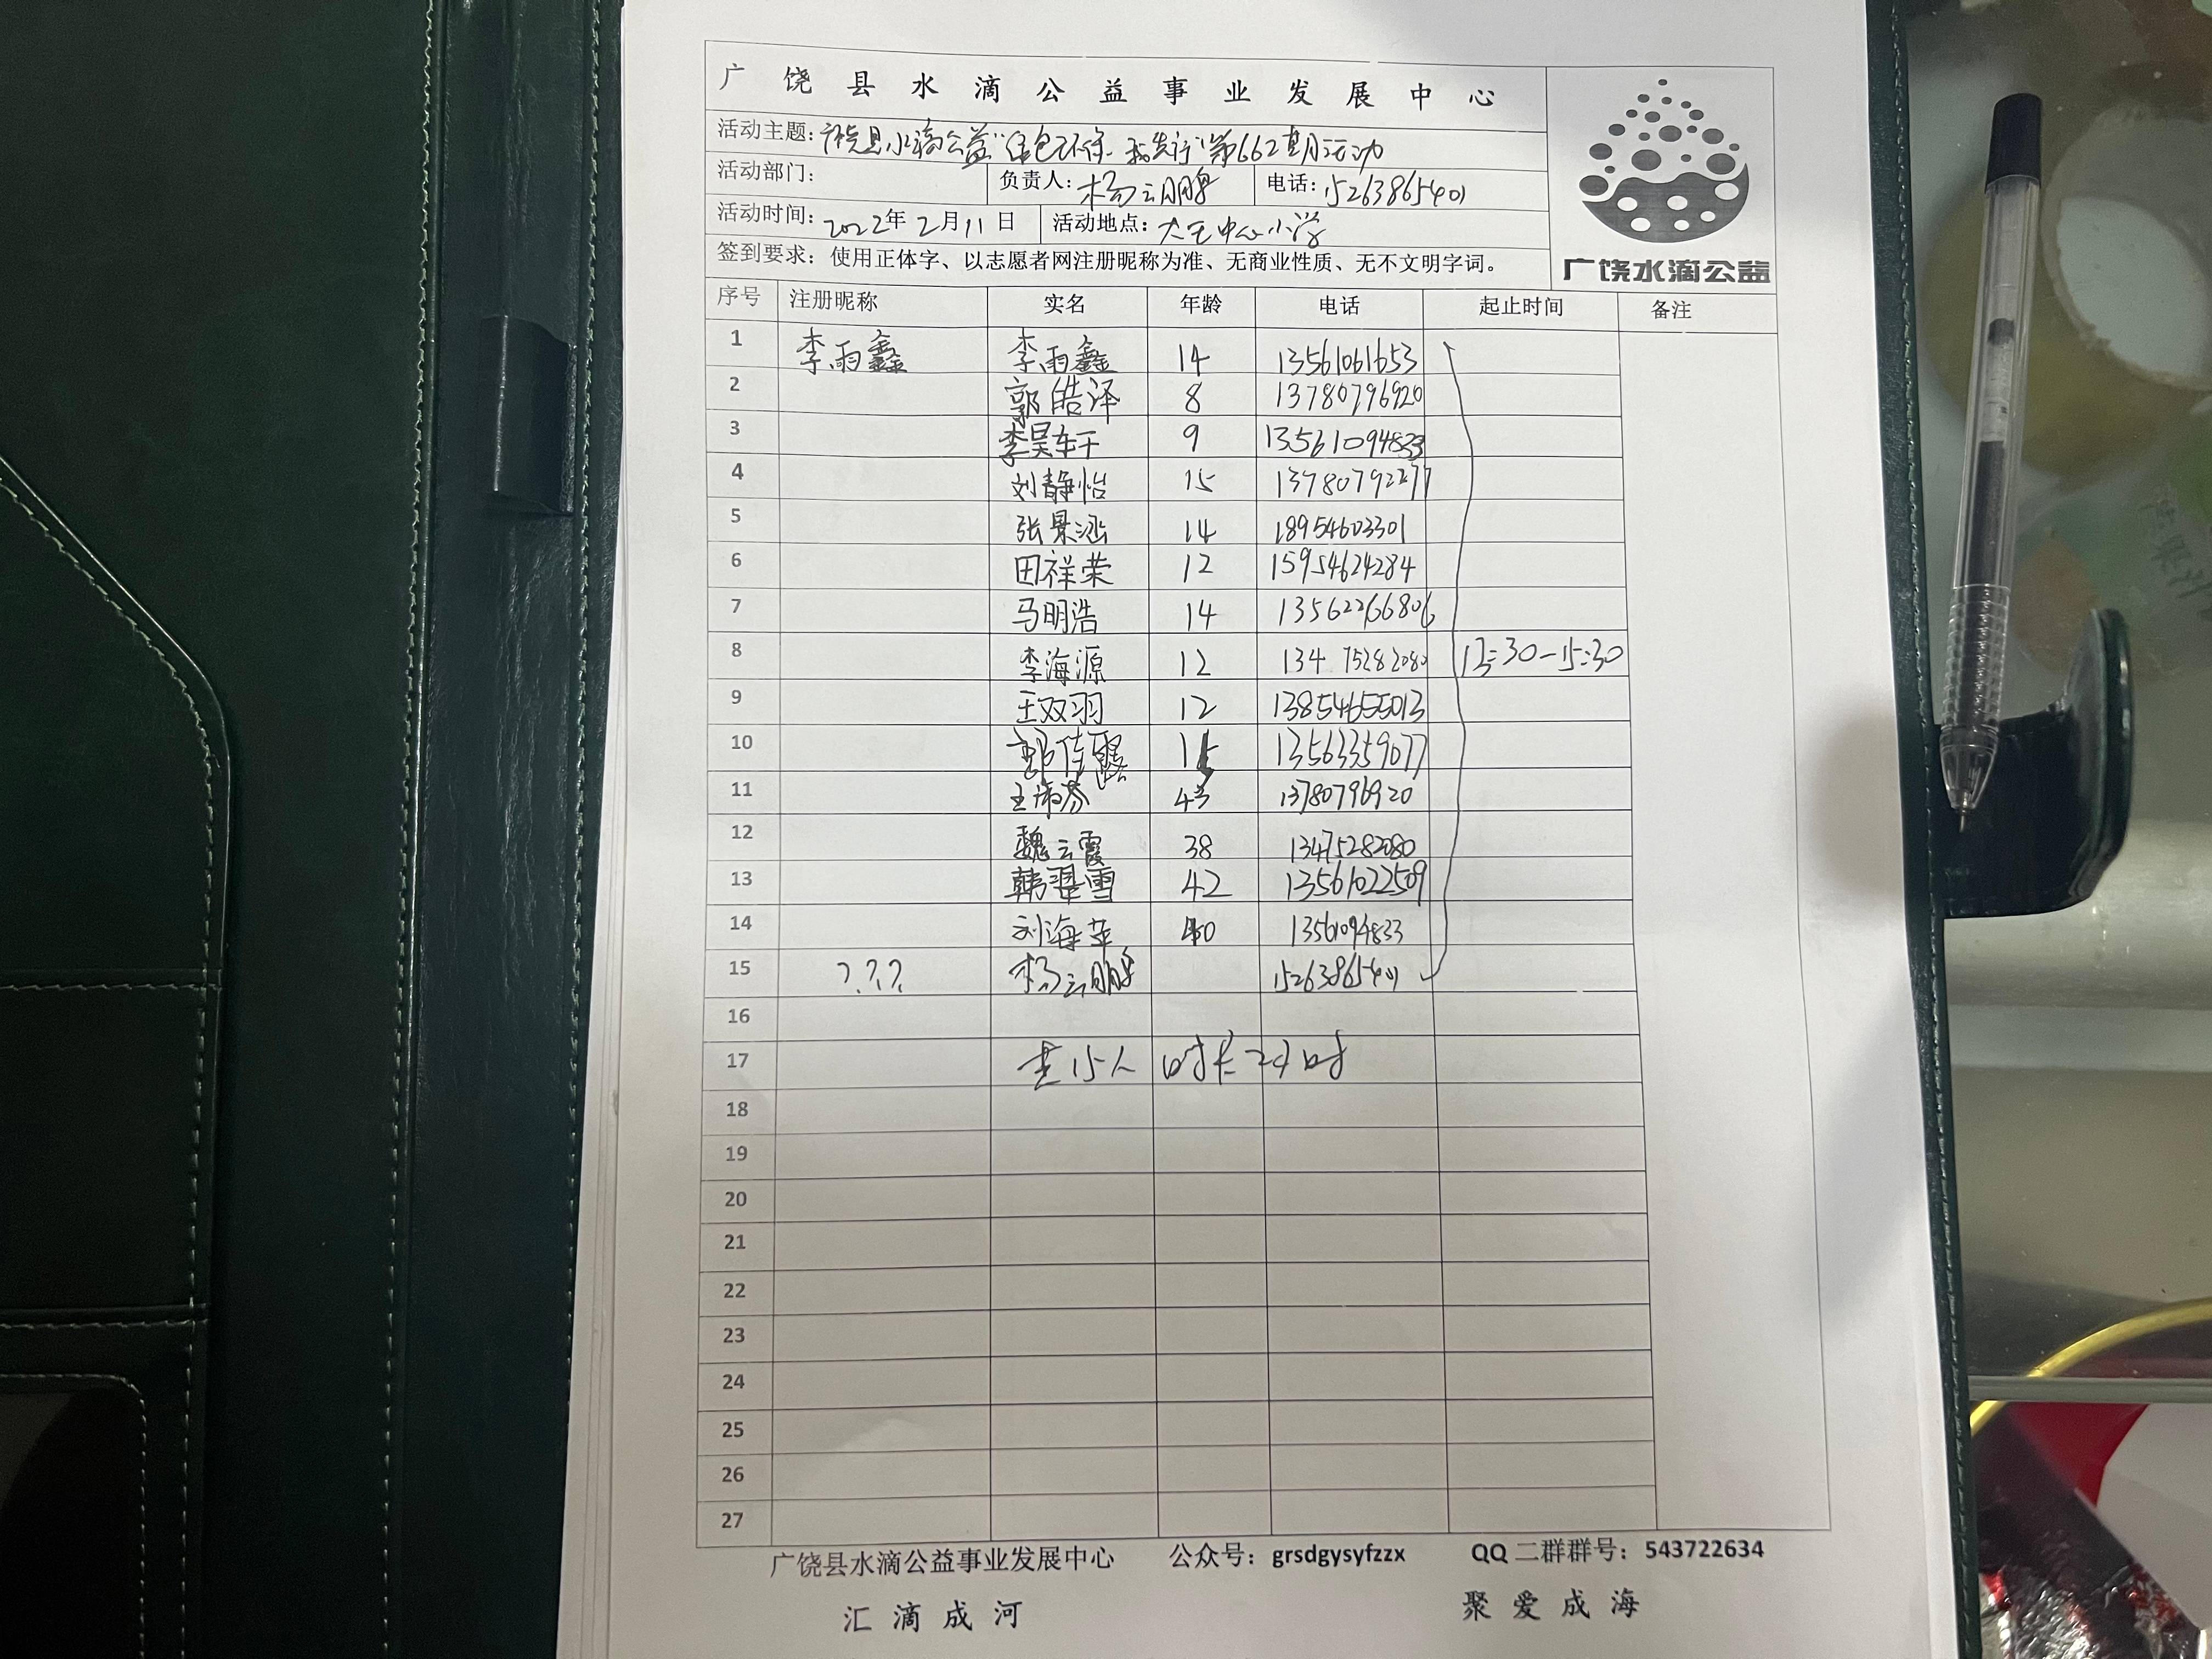 广饶县水滴公益事业发展中心
活动主题：广饶县水滴公益"绿色环保 我先行"第662期活动
活动部门： 负责人：杨云鹏 电话：15263865401
活动时间：2022年2月11日 活动地点：大王中心小学
签到要求：使用正体字、以志愿者网注册昵称为准、无商业性质、无不文明字词。
广饶水滴公益
序号 注册昵称 实名 年龄 电话 起止时间 备注
1 李雨鑫 李雨鑫 14 13561061653
2 郭皓泽 8 13780796920
3 李昊轩 9 13561094833
4 刘静怡 15 13780792277
5 张景涵 14 18954603301
6 田祥荣 12 15954624284
7 马明浩 14 13562266806
8 李海源 12 134 75282080 13:30-15:30
9 王双羽 12 13854655013
10 郭佳露 13563359077
11 王 芬 43 13780796920
12 魏云霞 38 13475282080
13 韩翠雪 42 13561022509
14 刘海苹 40 13561094833
15 ？？？ 杨云鹏 15263865401
16
17 共15人 时长2小时
18
19
20
21
22
23
24
25
26
27
广饶县水滴公益事业发展中心 公众号：grsdgysyfzzx QQ二群群号：543722634
汇滴成河 聚爱成海